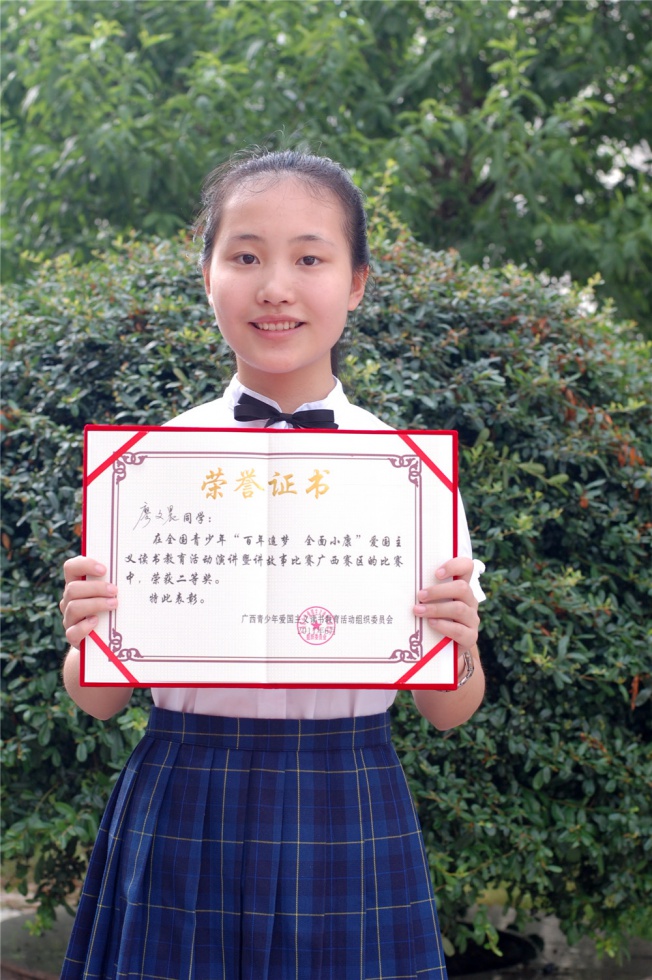 荣誉证书
廖文晨同学：
在全国青少年“百年追梦 全面小康”爱国主
义读书教育活动演讲暨讲故事比赛广西赛区的比赛
中，荣获二等奖。
特此表彰。
广西青少年爱国主义读书教育活动组织委员会